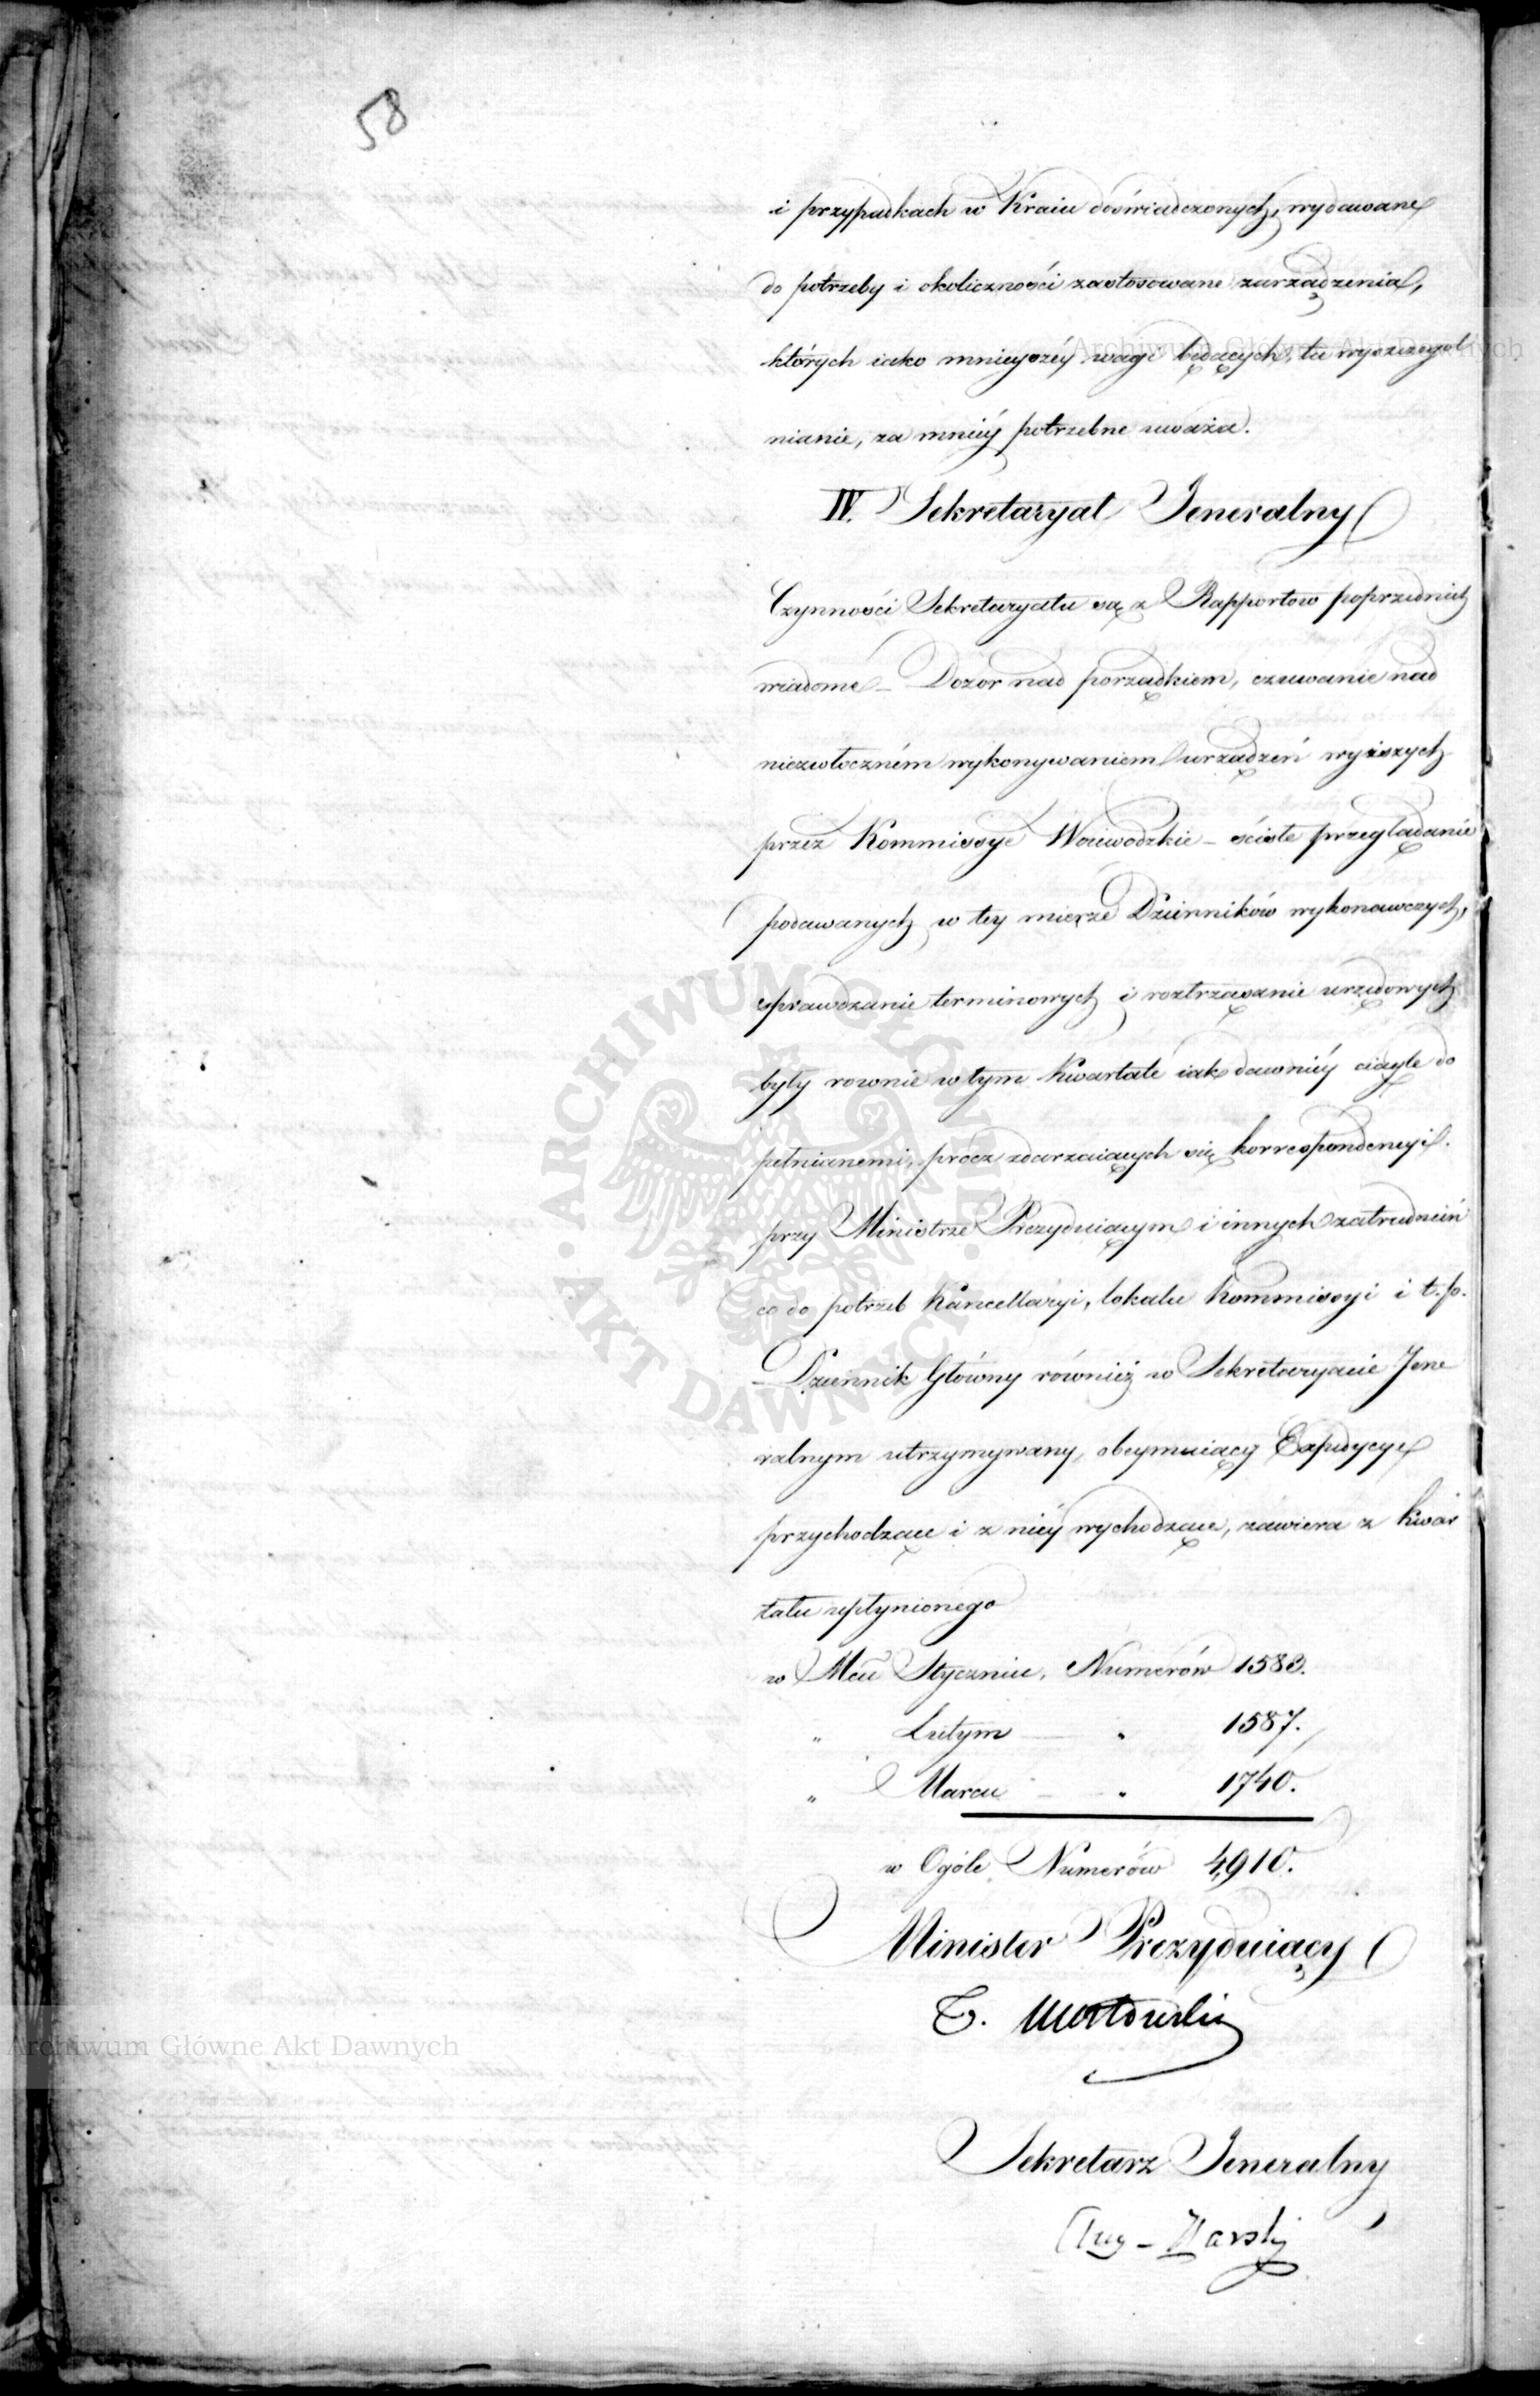 58
i przypadkach w Kraiu doświadczonych, wydawane
do potrzeby i okoliczności zastosowane zarządzenia,
których iako mnieyszéy wagi będących, tu wyszczegol
nianie, za mniéy potrzebne uważa.
IV. Sekretaryat Jeneralny
Czynności Sekretaryatu są z Rapportow poprzednich
wiadome – Dozor nad porządkiem, czuwanie nad
niezwłoczném wykonywaniem urządzeń wyższych
przez Kommissye Woiewodzkie – ścisłe przeglądanie
podawanych w tey mierze Dzienników wykonawczych,
sprawdzanie terminowych i roztrząsanie urzędowych
były rownie w tym Kwartale iak dawniéy ciągle do
pełnianemi, procz zdarzaiących się korrespondencyi
przy Ministrze Prezyduiącym i innych zatrudnień
co do potrzeb Kancellaryi, lokalu Kommissyi i t. p.
– Dziennik Główny również w Sekretaryacie Jene
ralnym utrzymywany, obeymuiący Expedycye
przychodzące i z niéy wychodzące, zawiera z Kwar
tału upłynionego
w Mcu Styczniu, Numerów 1583.
" Lutym – " 1587.
" Marcu – " 1740.
w Ogóle Numerów 4,910.
Minister Prezyduiący
T. Mostowski
Sekretarz Jeneralny
Aug – Karski
Archiwum Główne Akt Dawnych
Archiwum Główne Akt Dawnych
ARCHIWUM GŁÓWNE · AKT DAWNYCH ·